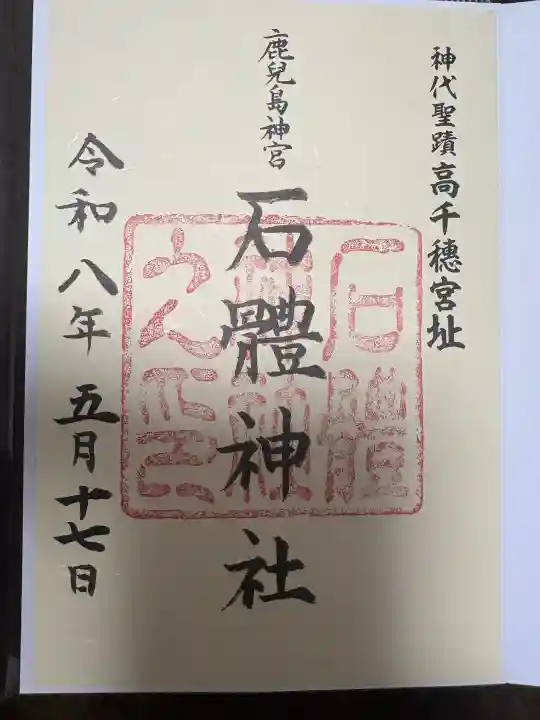 神代聖蹟高千穂宮址
鹿兒島神宮
石體神社
令和八年五月十七日
石體神社之印